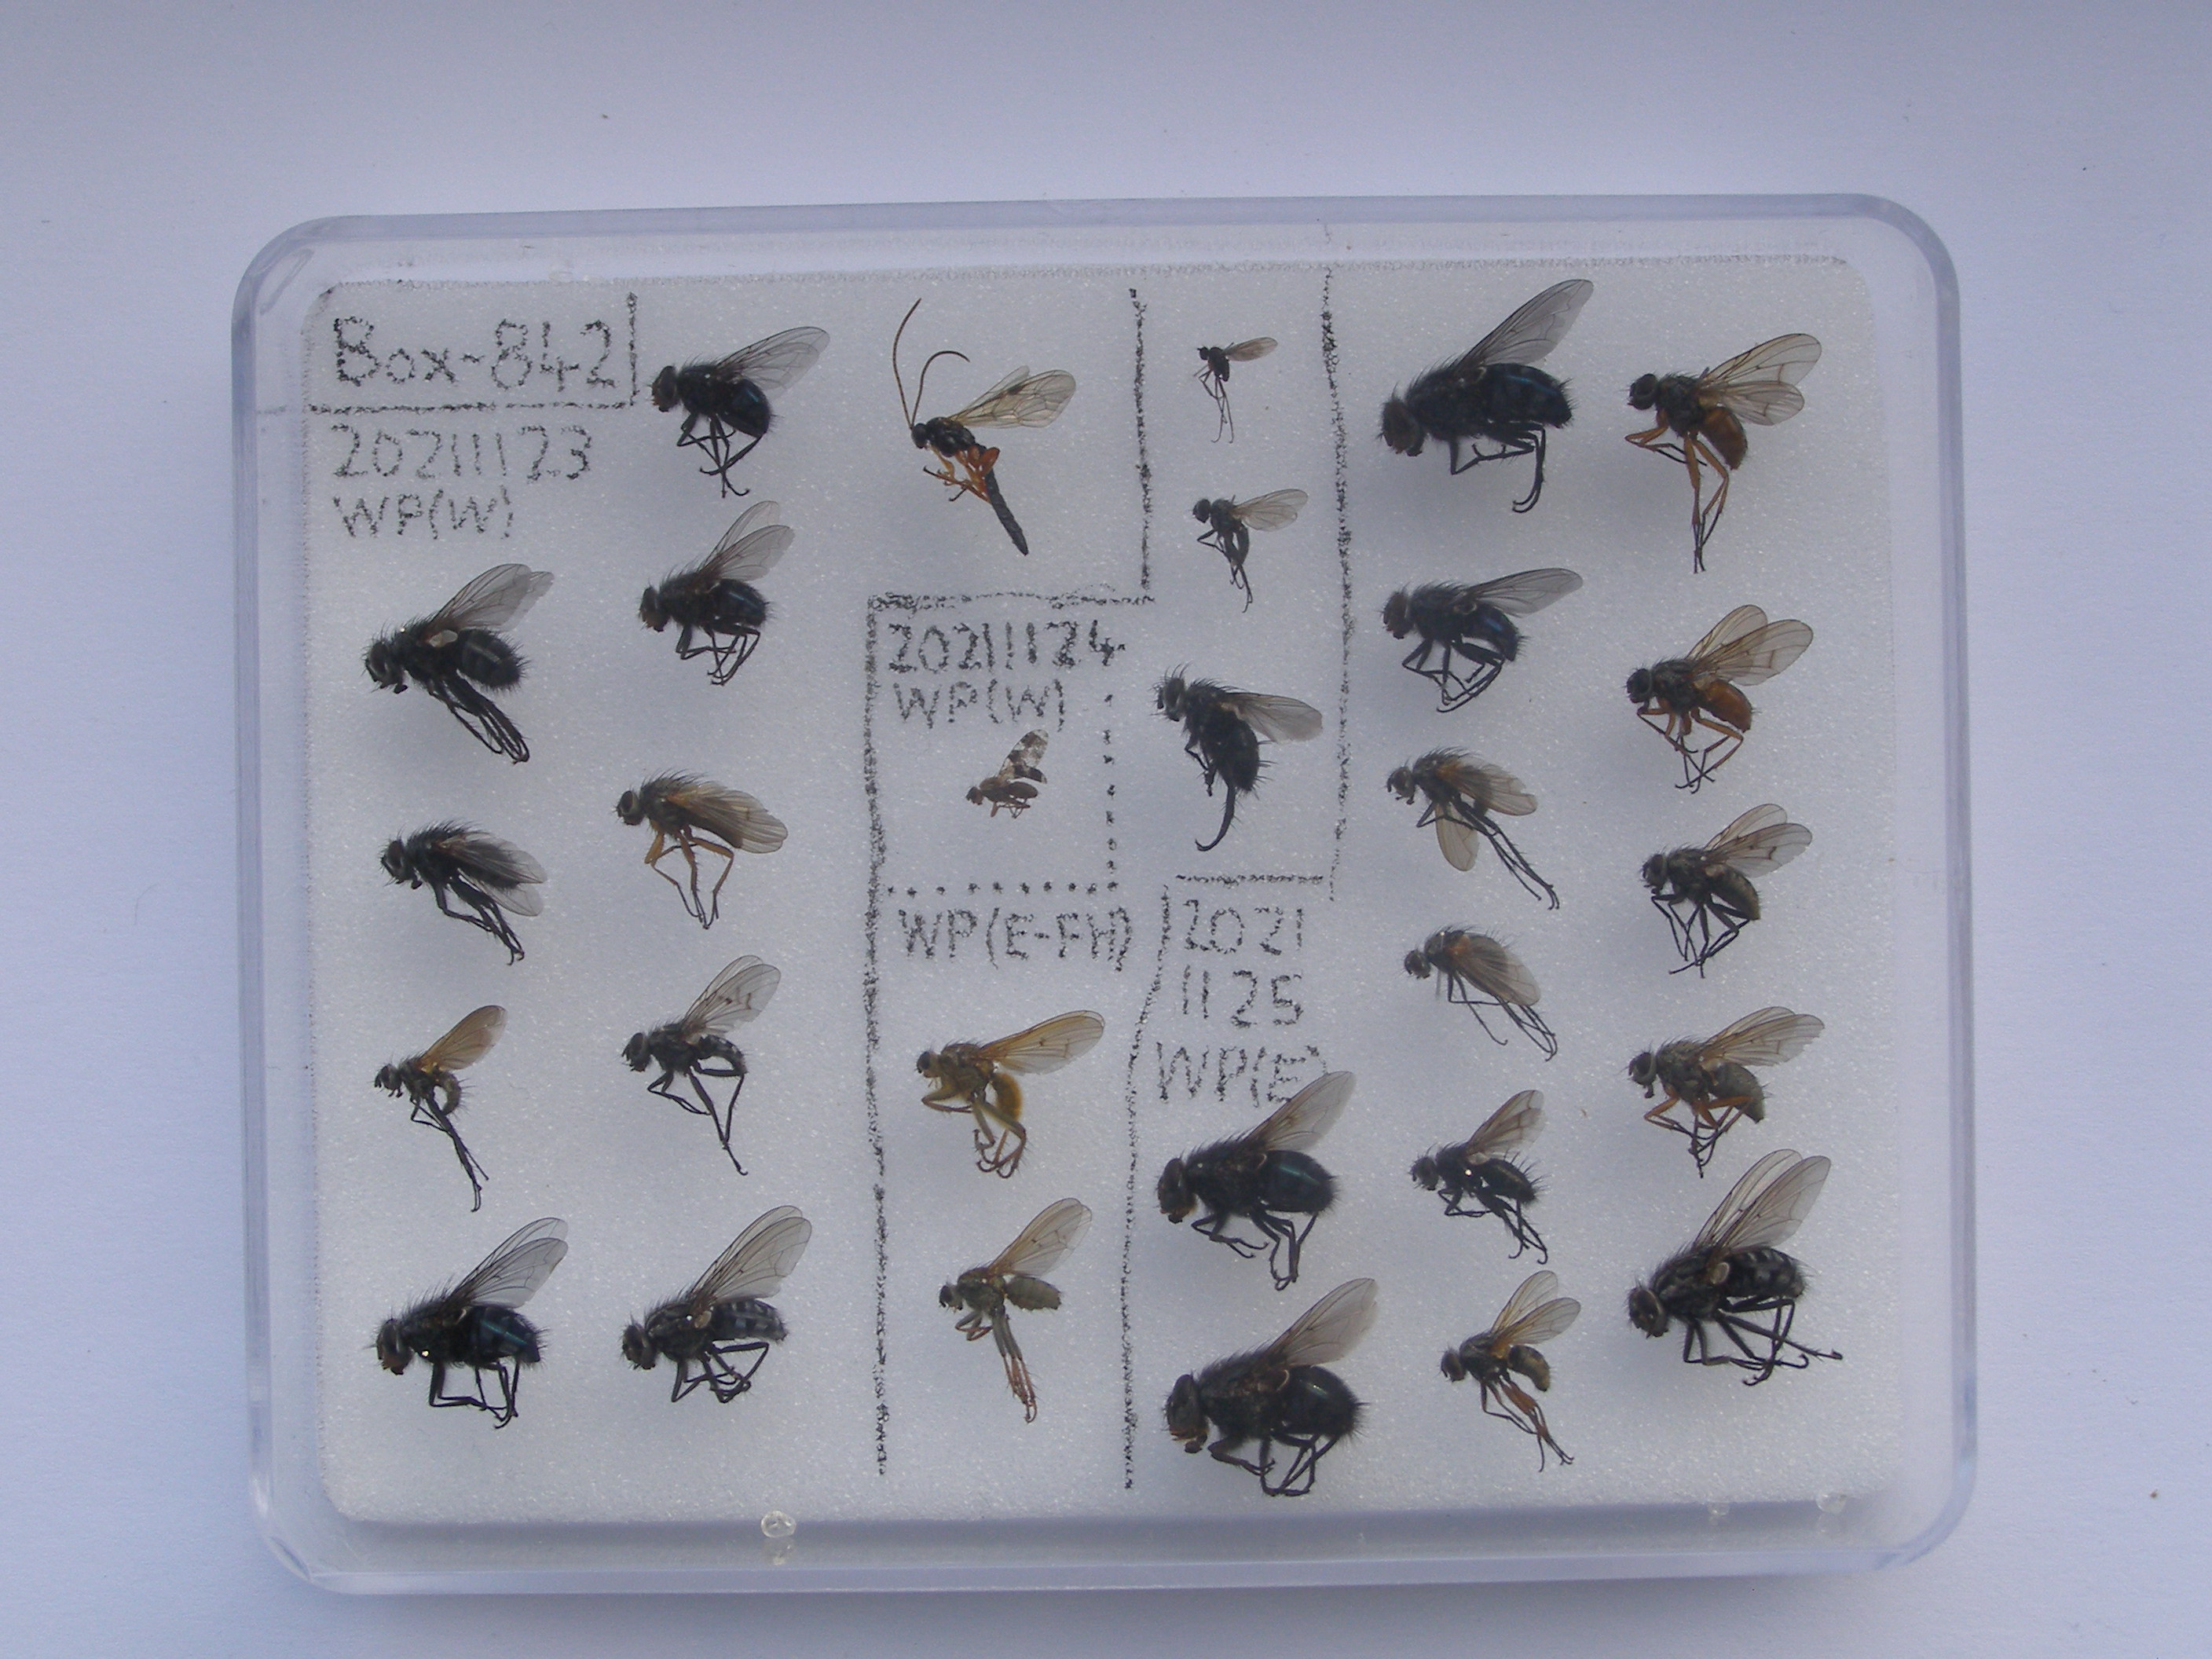 Box-842
20211123
WP(W)
20211124
WP(W)
WP(E-FH)
2021
1125
WP(E)